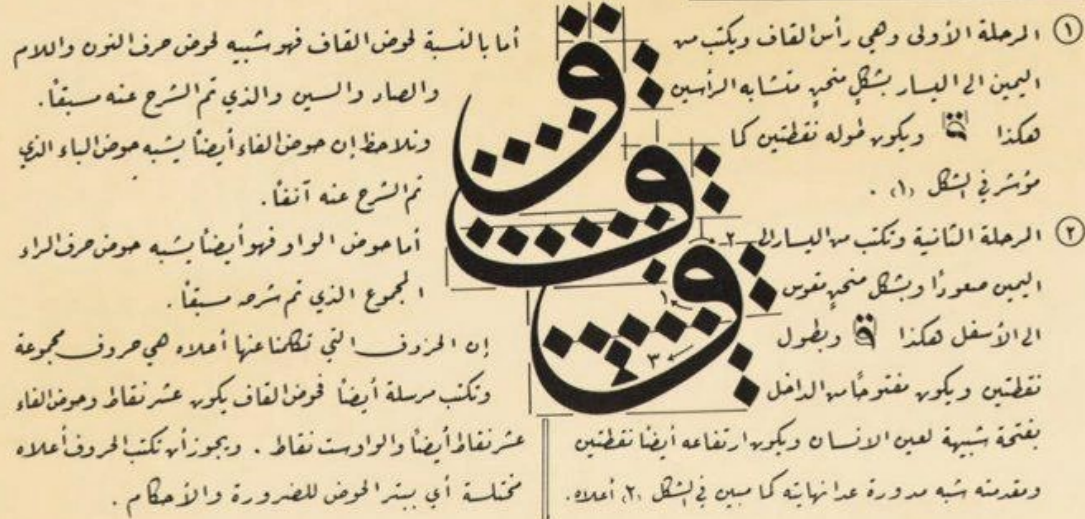 ① المرحلة الأولى وهي رأس القاف ويكتب من
اليمين الى اليسار بشكلٍ منحنٍ متشابه الرأسين
هكذا ويكون طوله نقطتين كما
مؤشر في الشكل (١) .
② المرحلة الثانية وتكتب من اليسار الى
اليمين صعوداً وبشكل منحنٍ مقوس
الى الأسفل هكذا وبطول
نقطتين ويكون مفتوحاً من الداخل
بفتحة شبيهة لعين الانسان ويكون ارتفاعه أيضاً نقطتين
ومقدمته شبه مدورة عدا نهايته كما مبين في الشكل (٢) أعلاه .
ق
ق
ق
١
٢
٣
أما بالنسبة لحوض القاف فهو شبيه لحوض حرف النون واللام
والصاد والسين والذي تم الشرح عنه مسبقاً .
ونلاحظ إن حوض الفاء أيضاً يشبه حوض الباء الذي
تم الشرح عنه آنفاً .
أما حوض الواو فهو أيضاً يشبه حوض حرف الراء
المجموع الذي تم شرحه مسبقاً .
إن الحروف التي تكلمنا عنها أعلاه هي حروف مجموعة
وتكتب مرسلة أيضاً فحوض القاف يكون عشر نقاط وحوض الفاء
عشر نقاط أيضاً والواو ست نقاط . ويجوز أن تكتب الحروف أعلاه
مختلسة أي ببتر الحوض للضرورة والأحكام .